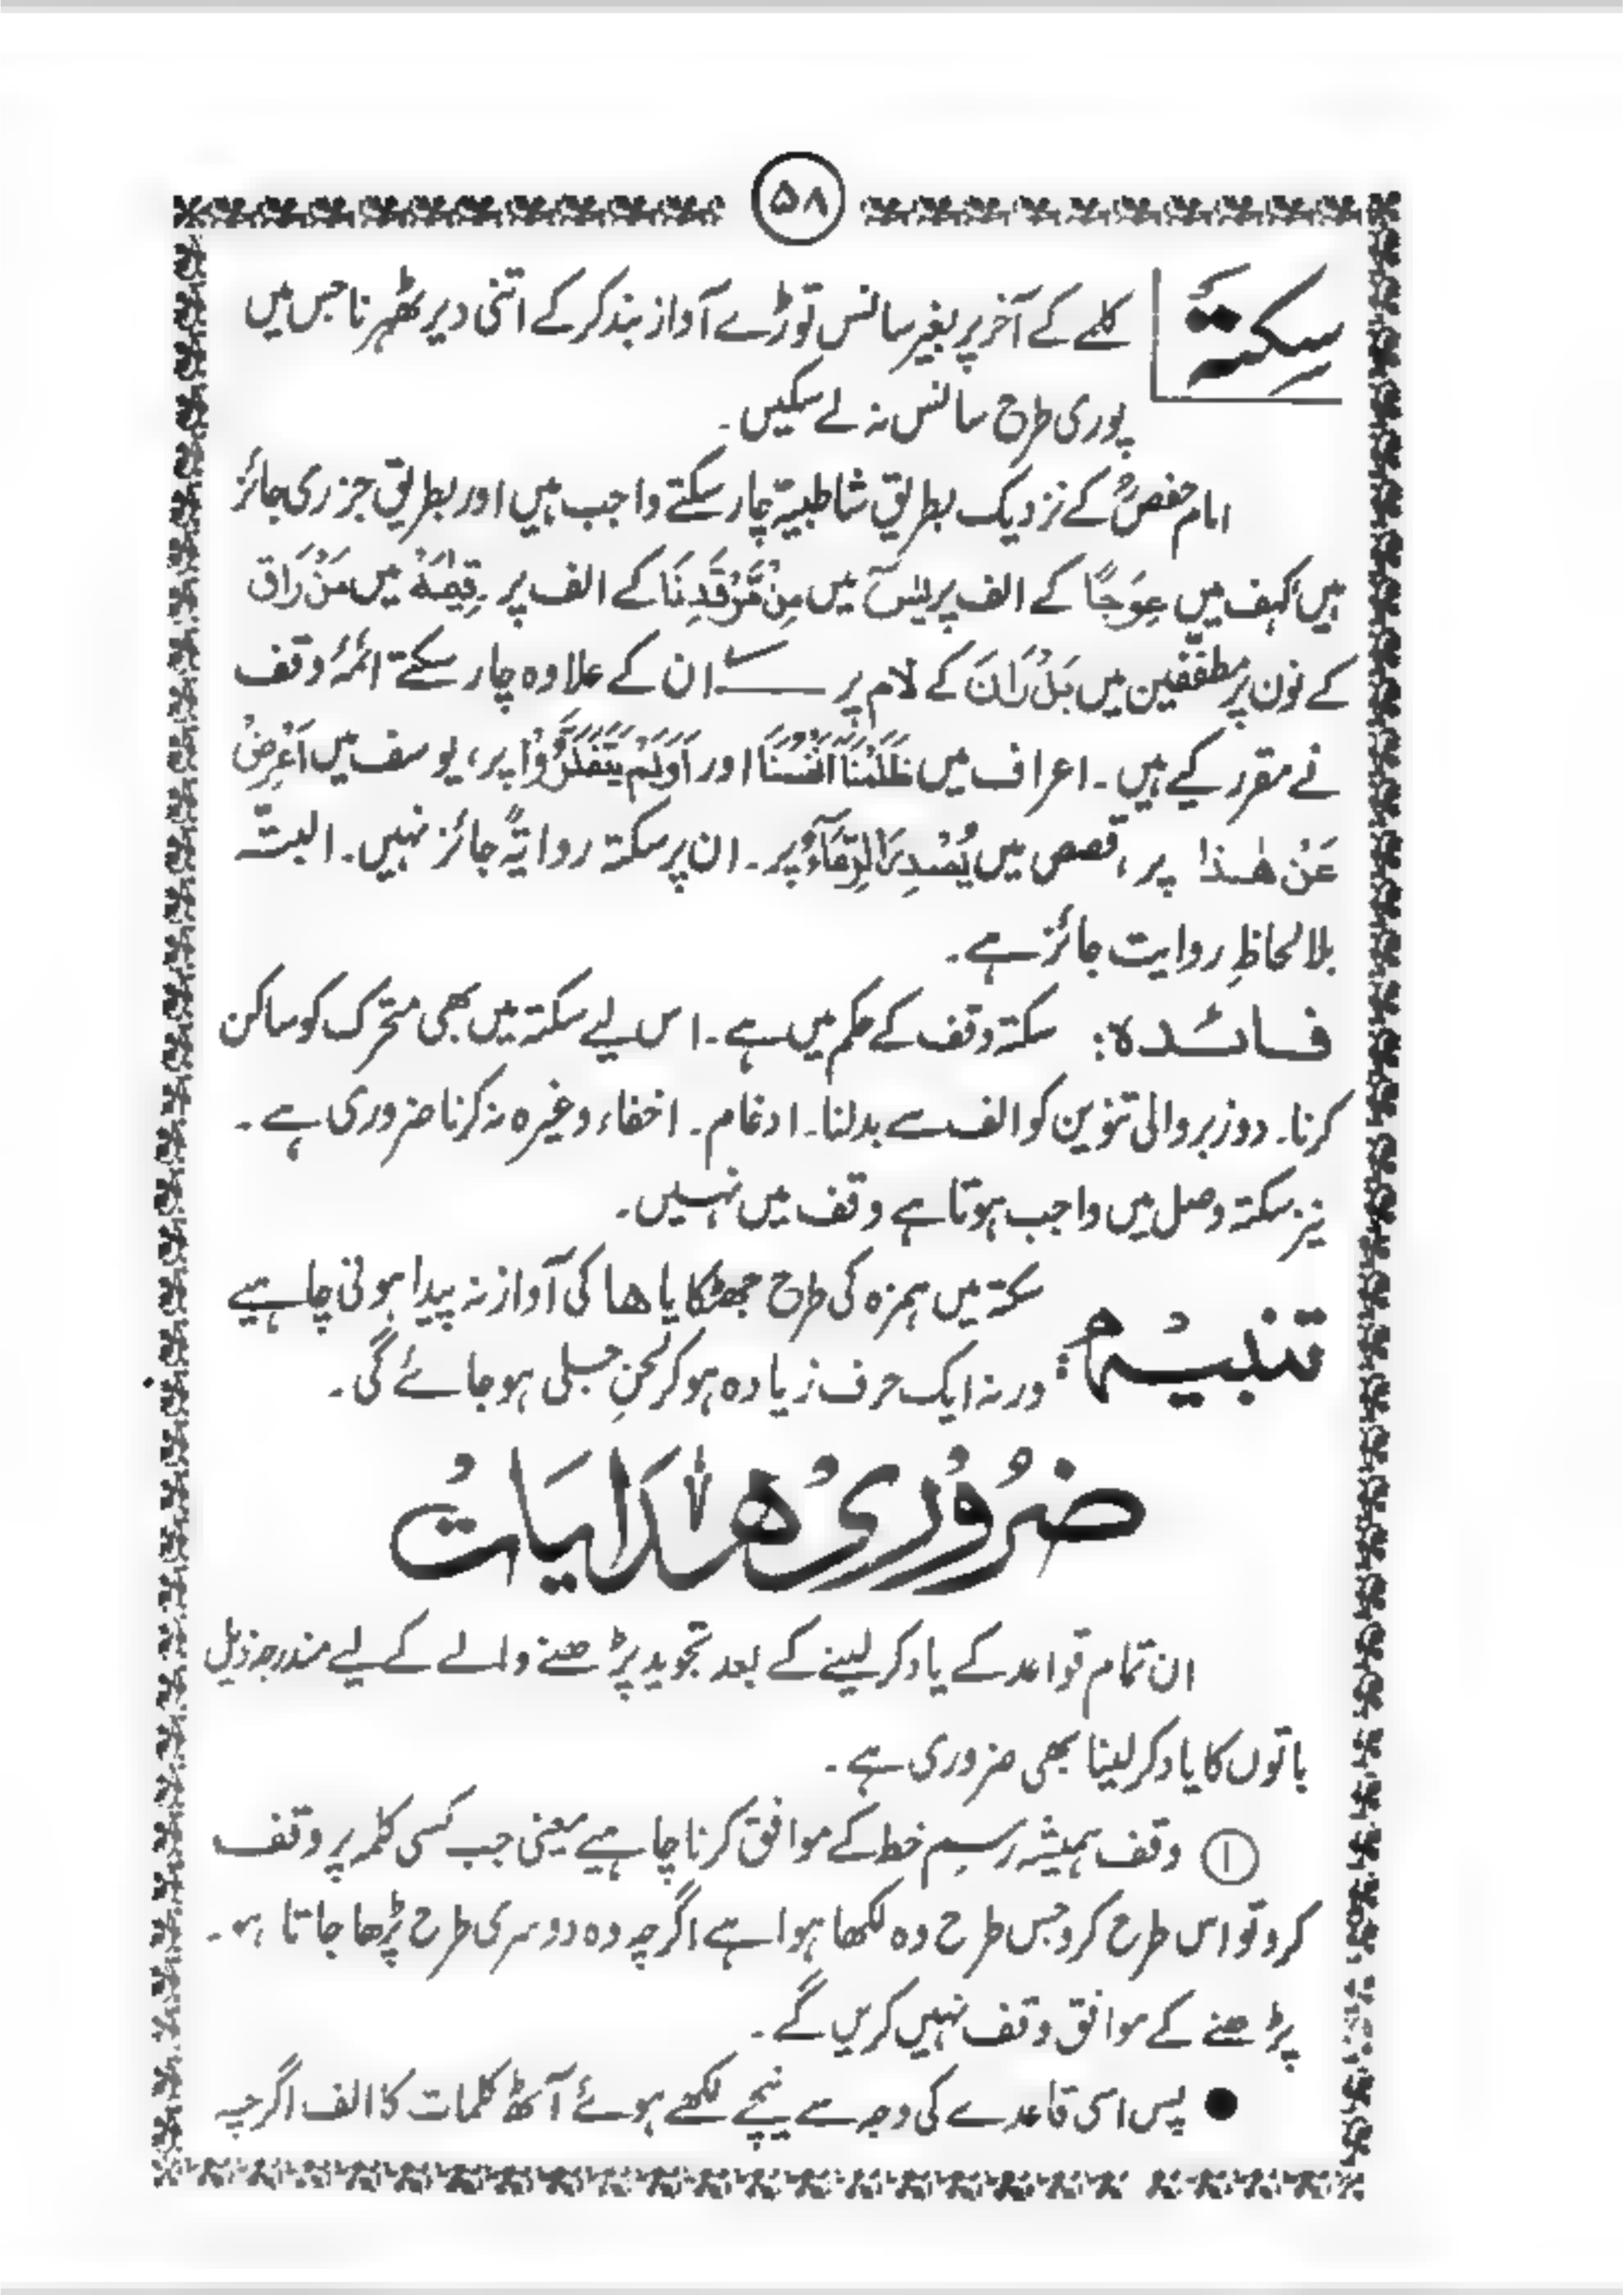 ۵۸
سکتۃ
کلمے کے آخر پر بغیر سانس توڑے آواز بند کرکے اتنی دیر ٹھہرنا جس میں
پوری طرح سانس نہ لے سکیں۔
امام حفصؒ کے نزدیک بطریق شاطبیۃ چار سکتے واجب ہیں اور بطریقِ جزری جائز
ہیں کہف میں عِوَجًا کے الف پر یٰسٓ میں مِنْ مَّرْقَدِنَا کے الف پر۔ قِیٰمَۃ میں مَنْ رَاق
کے نون پر مطفّفین میں بَلْ رَانَ کے لام پر ــــــ ان کے علاوہ چار سکتے ائمۂ وقف
نے مقرر کیے ہیں۔ اعراف میں ظَلَمْنَآ اَنْفُسَنَا اور اَوَلَمْ یَتَفَکَّرُوْا پر، یوسف میں اَعْرِضْ
عَنْ ھٰذَا پر، قصص میں یُصْدِرَ الرِّعَآءُ پر۔ ان پر سکتۃ روایۃً جائز نہیں۔ البتّہ
بلا لحاظِ روایت جائز ہے۔
فائدہ: سکتۃ وقف کے حکم میں ہے۔ اس لیے سکتۃ میں بھی متحرک کو ساکن
کرنا۔ دو زبر والی تنوین کو الف سے بدلنا۔ ادغام۔ اخفاء وغیرہ نہ کرنا ضروری ہے۔
نیز سکتۃ وصل میں واجب ہوتا ہے وقف میں نہیں۔
تنبیہ: سکتۃ میں ہمزہ کی طرح جھٹکا یا ھا کی آواز نہ پیدا ہونی چاہیے
ورنہ ایک حرف زیادہ ہو کر لحنِ جلی ہو جائے گی۔
ضَرُوْرِیْ ھِدَایَاتْ
ان تمام قواعد کے یاد کر لینے کے بعد تجوید پڑھنے والے کے لیے مندرجہ ذیل
باتوں کا یاد کر لینا بھی ضروری ہے۔
① وقف ہمیشہ رسمِ خط کے موافق کرنا چاہیے یعنی جب کسی کلمہ پر وقف
کرو تو اس طرح کرو جس طرح وہ لکھا ہوا ہے اگرچہ وہ دوسری طرح پڑھا جاتا ہو۔
پڑھنے کے موافق وقف نہیں کریں گے۔
● پس اسی قاعدے کی وجہ سے نیچے لکھے ہوئے آٹھ کلمات کا الف اگرچہ